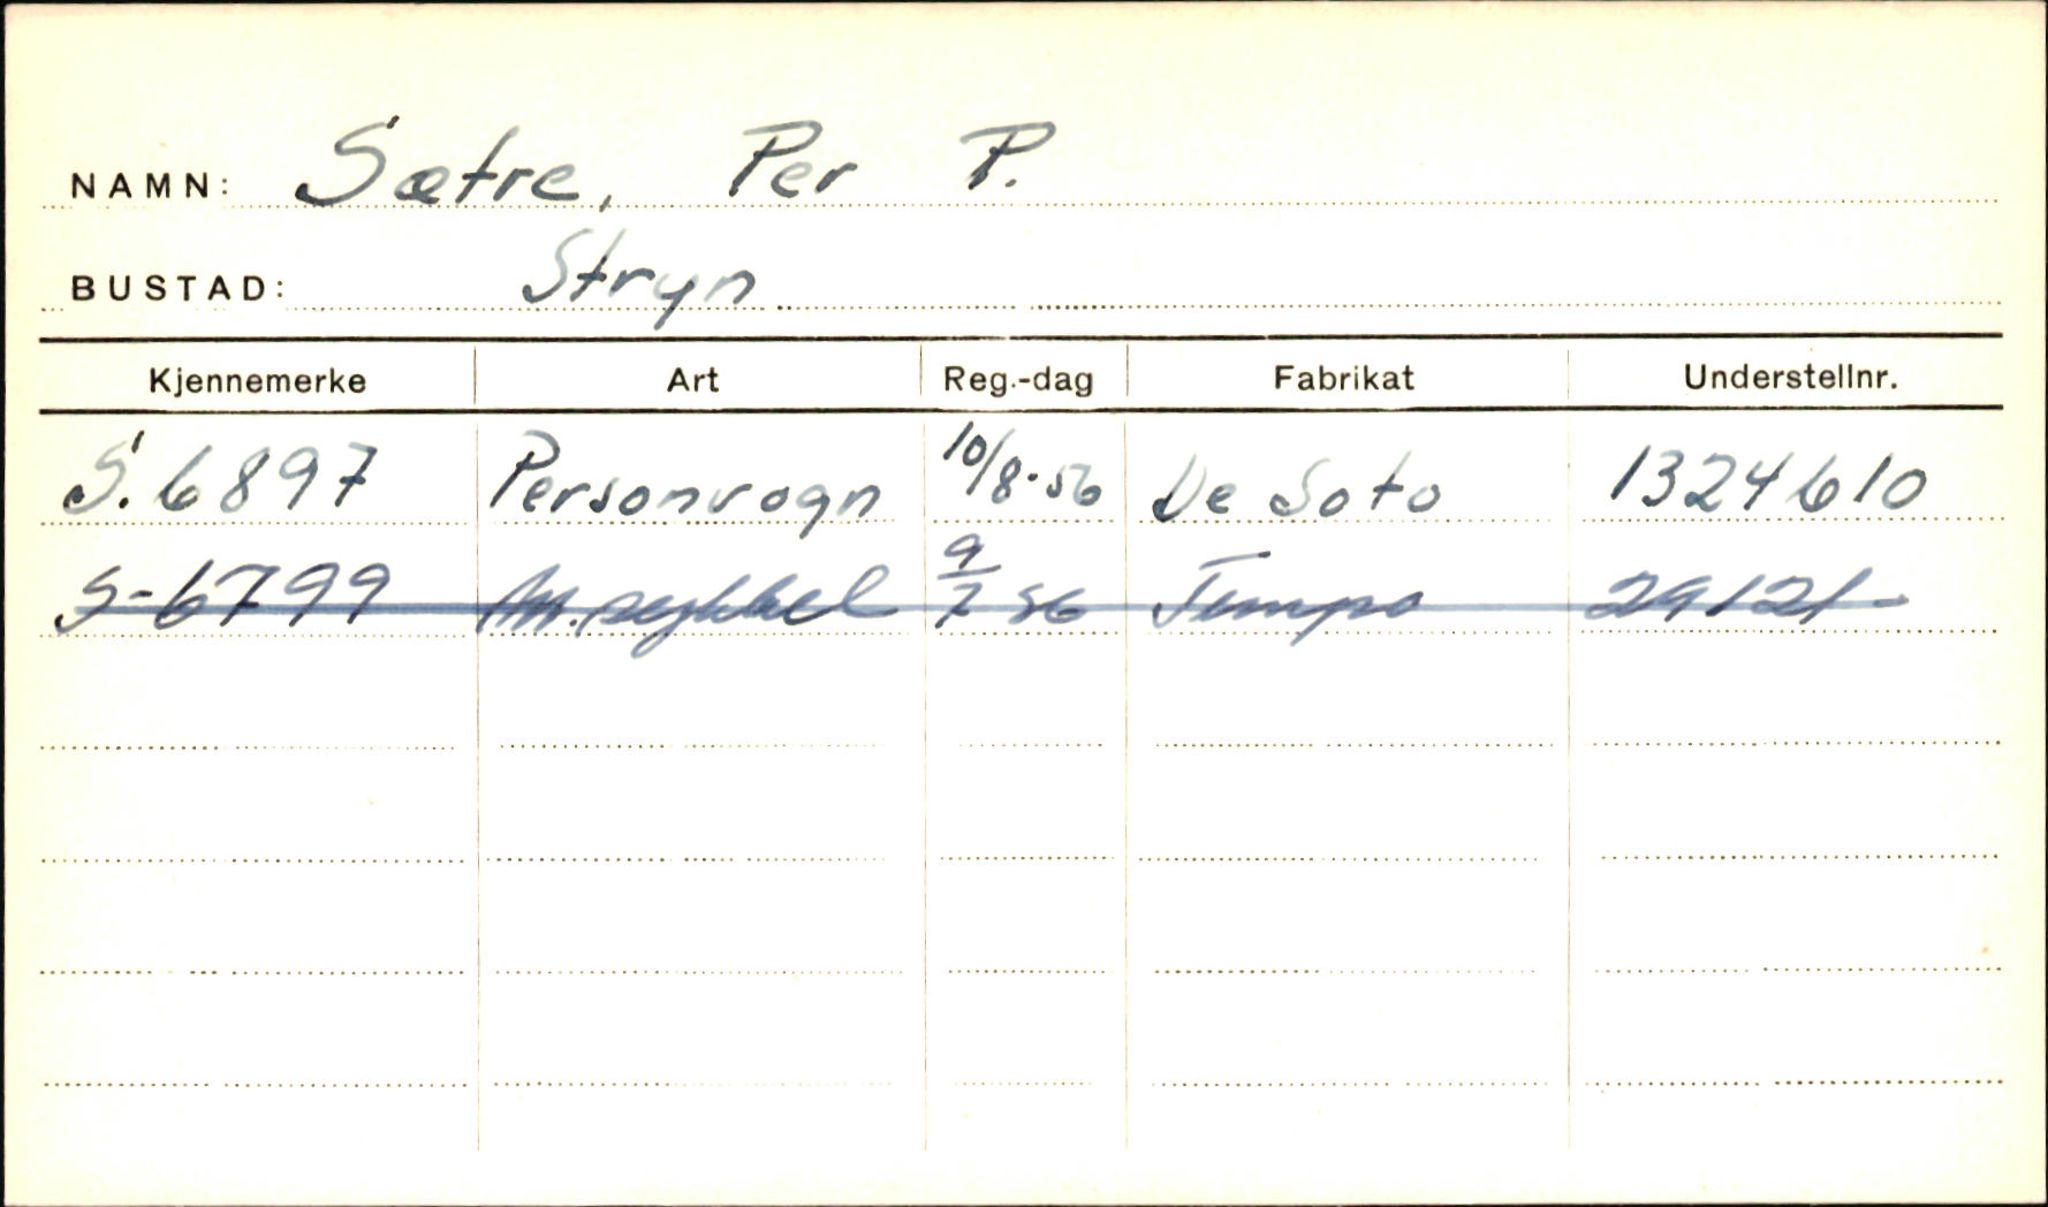 NAMN: Sætre, Per P.
BUSTAD: Stryn
Kjennemerke Art Reg.-dag Fabrikat Understellnr.
S.6897 Personvogn 10/8-56 De Soto 1324610
S-6799 M.sykkel 9/7 56 Tempo 29121